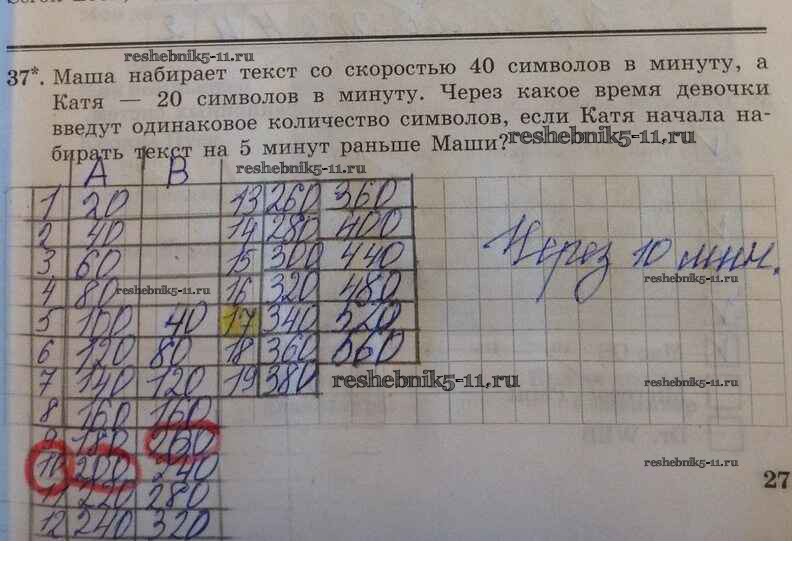 reshebnik5-11.ru
37*. Маша набирает текст со скоростью 40 символов в минуту, а
Катя — 20 символов в минуту. Через какое время девочки
введут одинаковое количество символов, если Катя начала на-
бирать текст на 5 минут раньше Маши?
reshebnik5-11.ru
reshebnik5-11.ru
A B
1 20 13 260 360
2 40 14 280 400
3 60 15 300 440
Через 10 мин.
4 80 reshebnik5-11.ru 16 320 480 reshebnik5-11.ru
5 100 40 17 340 520
6 120 80 18 360 560
7 140 120 19 380 reshebnik5-11.ru
8 160 160
9 180 200
10 200 240 reshebnik5-11.ru
27
11 220 280
12 240 320 reshebnik5-11.ru